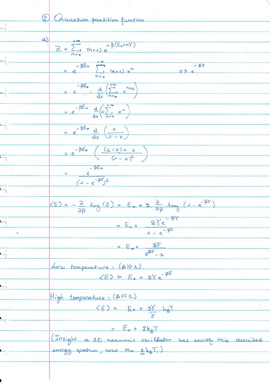 ② Quantum partition function
a)
Z = Σ_{n=0}^{+∞} (n+1) e^{-β(E₀+nγ)}
= e^{-βE₀} Σ_{n=0}^{+∞} (n+1) x^n x ≡ e^{-βγ}
= e^{-βE₀} d/dx (Σ_{n=0}^{+∞} x^{n+1})
= e^{-βE₀} d/dx (x Σ_{n=0}^{+∞} x^n)
= e^{-βE₀} d/dx (x/(1-x))
= e^{-βE₀} (((1-x)+x)/(1-x)²)
= e^{-βE₀}/(1-e^{-βγ})²
⟨E⟩ = -∂/∂β log(Z) = E₀ + 2 ∂/∂β log(1-e^{-βγ})
= E₀ + 2γe^{-βγ}/(1-e^{-βγ})
= E₀ + 2γ/(e^{βγ}-1)
Low temperature: (β≫1)
⟨E⟩ = E₀ + 2γ e^{-βγ}
High temperature: (β≪1)
⟨E⟩ = E₀ + 2γ/γ k_BT
= E₀ + 2k_BT
(Insight: a 2D harmonic oscillator has exactly this described
energy spectrum, note the 2k_BT.)